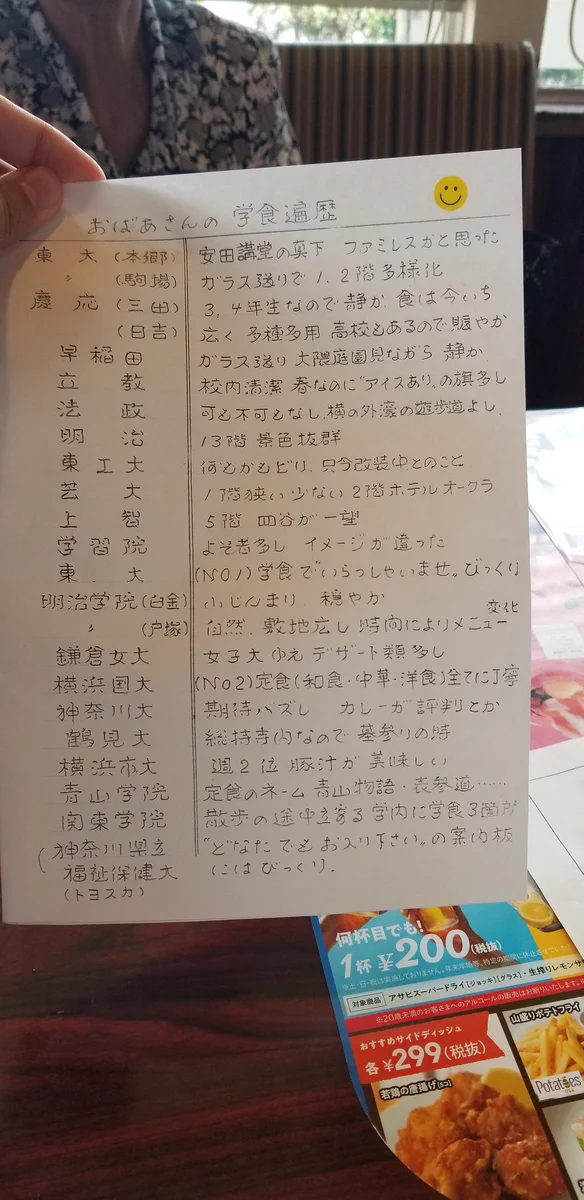 おばあさんの 学食遍歴
東 大 (本郷) 安田講堂の真下 ファミレスかと思った
〃 (駒場) ガラス張りで 1.2階多様化
慶 応 (三田) 3,4年生なので静か. 食は今いち
(日吉) 広く 多種多用 高校もあるので賑やか
早稲田 ガラス張り 大隈庭園見ながら 静か.
立 教 校内清潔 春なのに"アイスあり"の旗多し
法 政 可も不可もなし.横の外濠の遊歩道よし.
明 治 13階 景色抜群
東 工 大 何もかもビリ.只今改装中とのこと
芸 大 1階狭い 少ない 2階ホテルオークラ
上 智 5階 四谷が一望
学習院 よそ者多し イメージが違った
東.大 (NO1)学食でいらっしゃいませ。びっくり
明治学院(白金) 小じんまり. 穏やか
〃 (戸塚) 自然.敷地広し 時間によりメニュー変化
鎌倉女大 女子大ゆえ デザート類多し
横浜国大 (No2)定食(和食・中華・洋食)全てに丁寧
神奈川大 期待ハズレ カレーが評判とか
鶴見大 総持寺内なので 墓参りの時
横浜市大 週2位 豚汁が美味しい
青山学院 定食のネーム 青山物語・表参道……
関東学院 散歩の途中立寄る 学内に学食3箇所
(神奈川県立 "どなたでもお入り下さい"の案内板
福祉保健大 にはびっくり.
(トヨスカ)
何杯目でも!
1杯 ¥200(税抜)
対象商品 アサヒスーパードライ[ジョッキ][グラス]・生搾りレモンサ
※20歳未満のお客さまへのアルコールの販売はお断りいたします。
おすすめサイドディッシュ
各¥299(税抜)
若鶏の唐揚げ[5コ]
山盛りポテトフライ
Potatoes